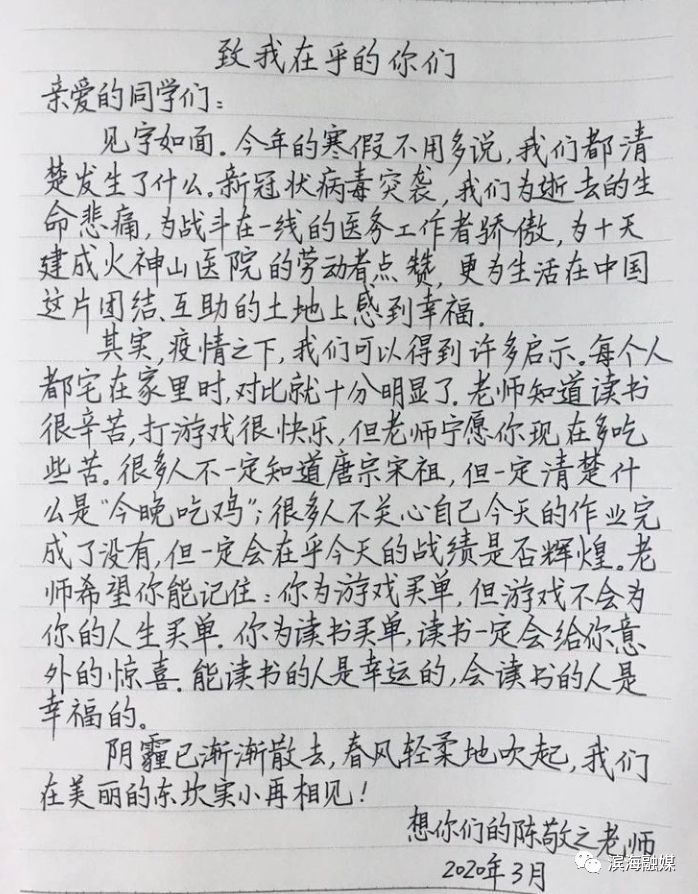 致我在乎的你们
亲爱的同学们：
见字如面．今年的寒假不用多说，我们都清
楚发生了什么。新冠状病毒突袭，我们为逝去的生
命悲痛，为战斗在一线的医务工作者骄傲，为十天
建成火神山医院的劳动者点赞，更为生活在中国
这片团结、互助的土地上感到幸福．
其实，疫情之下，我们可以得到许多启示。每个人
都宅在家里时，对比就十分明显了．老师知道读书
很辛苦，打游戏很快乐，但老师宁愿你现在多吃
些苦。很多人不一定知道唐宗宋祖，但一定清楚什
么是“今晚吃鸡”；很多人不关心自己今天的作业完
成了没有，但一定会在乎今天的战绩是否辉煌。老
师希望你能记住：你为游戏买单，但游戏不会为
你的人生买单．你为读书买单，读书一定会给你意
外的惊喜．能读书的人是幸运的，会读书的人是
幸福的。
阴霾已渐渐散去，春风轻柔地吹起，我们
在美丽的东坎实小再相见！
想你们的陈敬之老师
2020年3月
滨海融媒